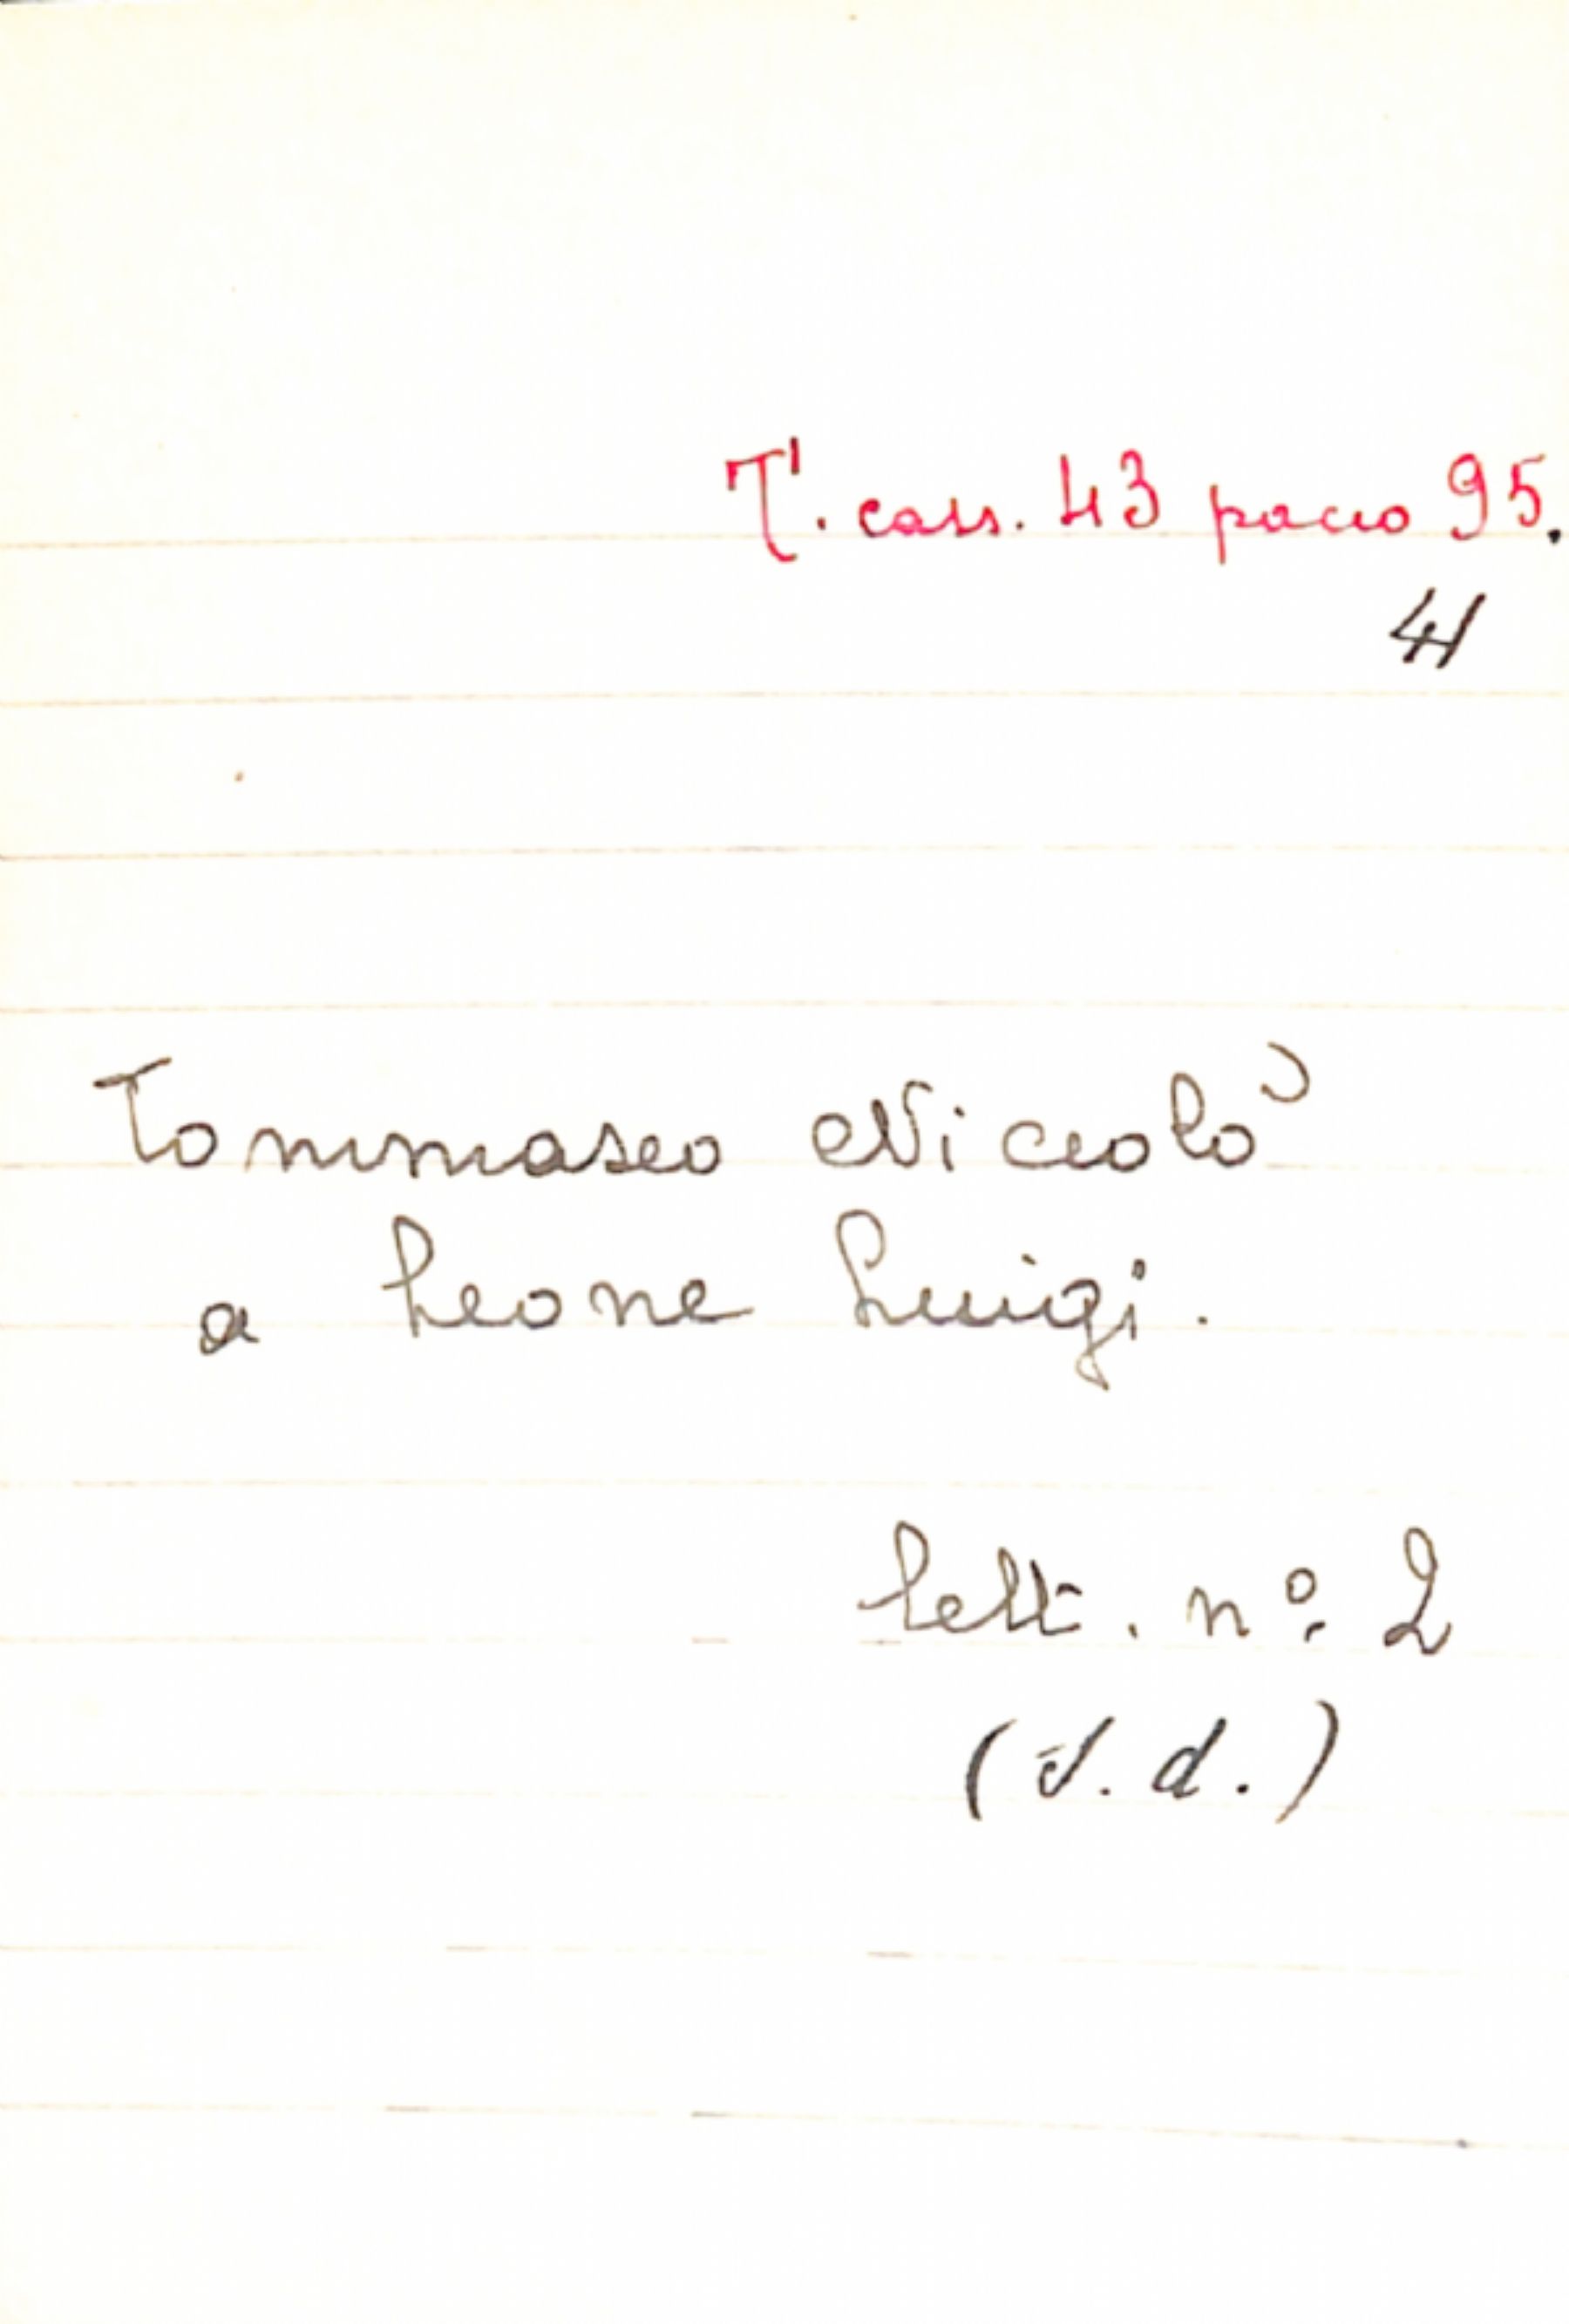 T. cass. 43 pacco 95.
4
Tommaseo Niccolò
a Leone Luigi.
Lett. n.º 2
(s. d.)